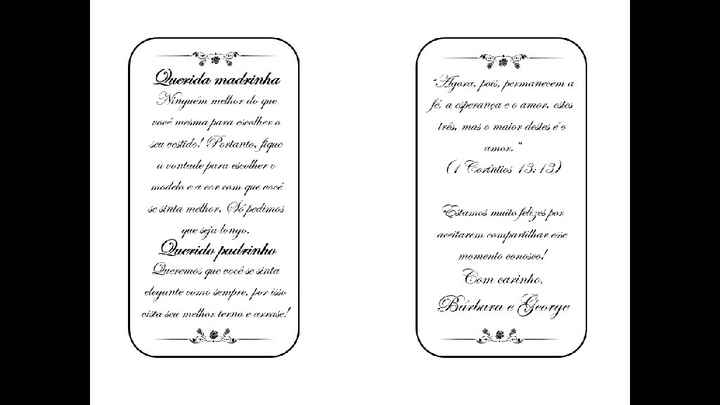 Querida madrinha
Ninguém melhor do que
você mesma para escolher o
seu vestido! Portanto, fique
a vontade para escolher o
modelo e a cor com que você
se sinta melhor. Só pedimos
que seja longo.
Querido padrinho
Queremos que você se sinta
elegante como sempre, por isso
vista seu melhor terno e arrase!
"Agora, pois, permanecem a
fé, a esperança e o amor, estes
três, mas o maior destes é o
amor."
(1 Coríntios 13:13)
Estamos muito felizes por
aceitarem compartilhar esse
momento conosco!
Com carinho,
Bárbara e George